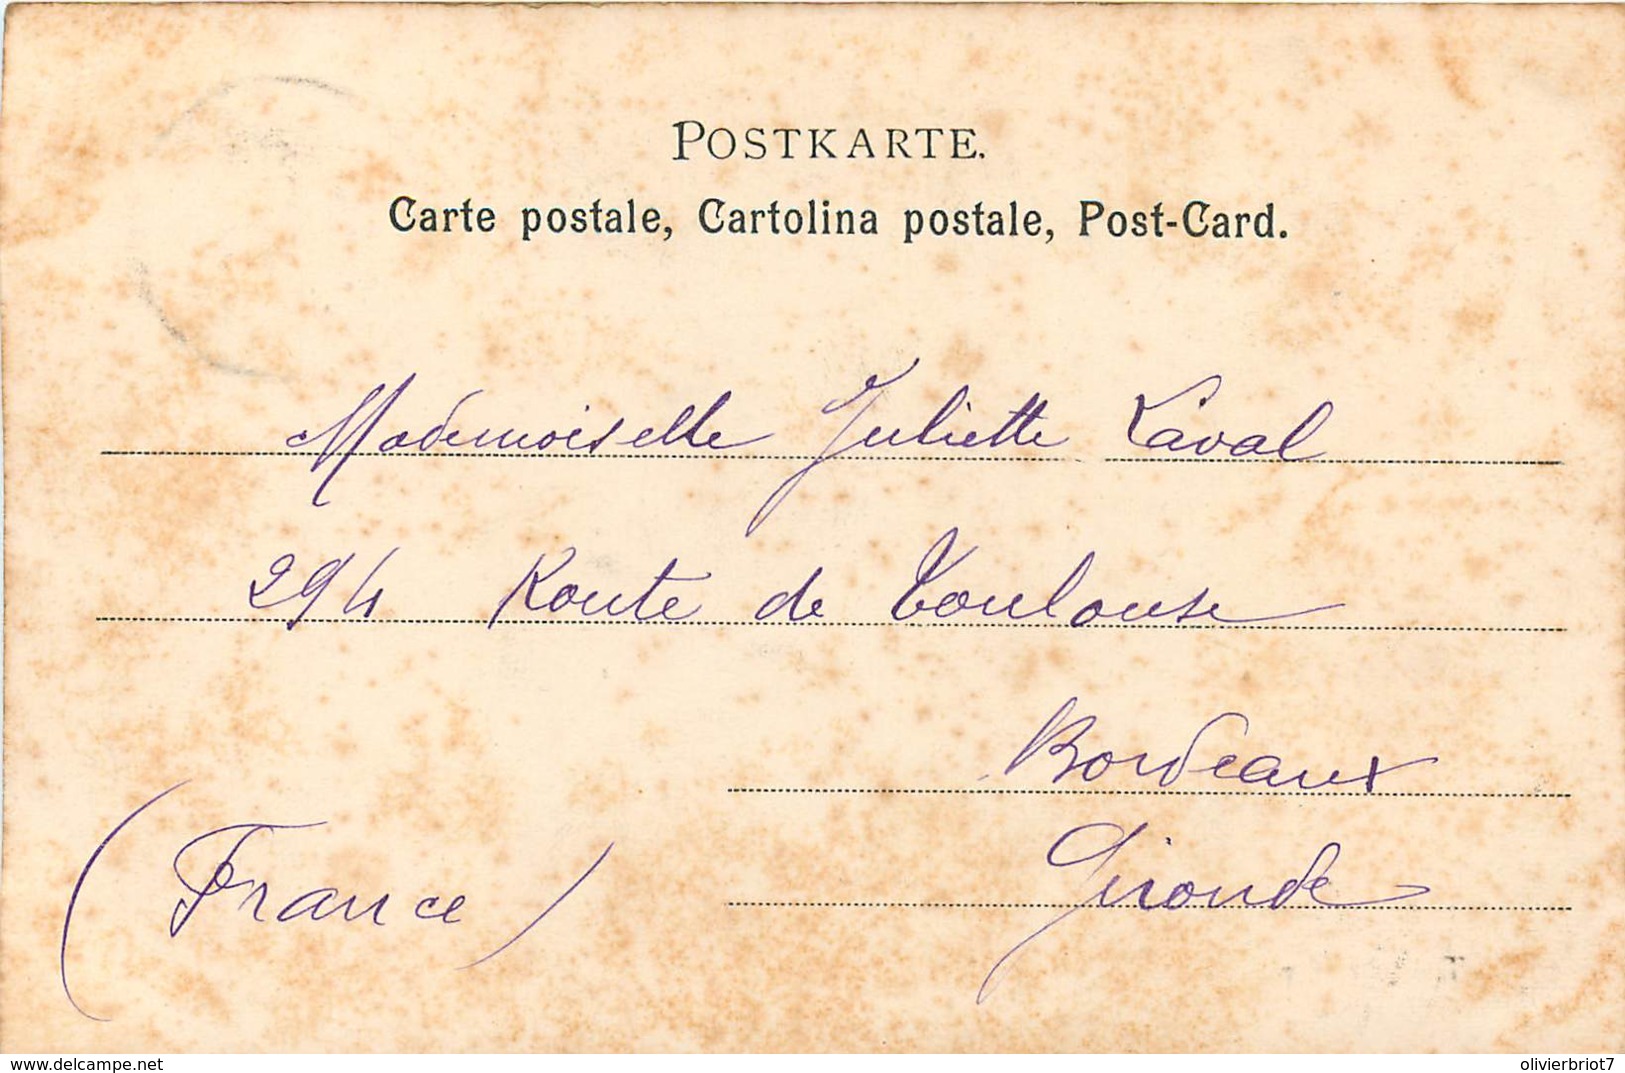 POSTKARTE.
Carte postale, Cartolina postale, Post-Card.
Mademoiselle Juliette Laval
294 Route de Toulouse
Bordeaux
Gironde
(France)
www.delcampe.net
olivierbriot7